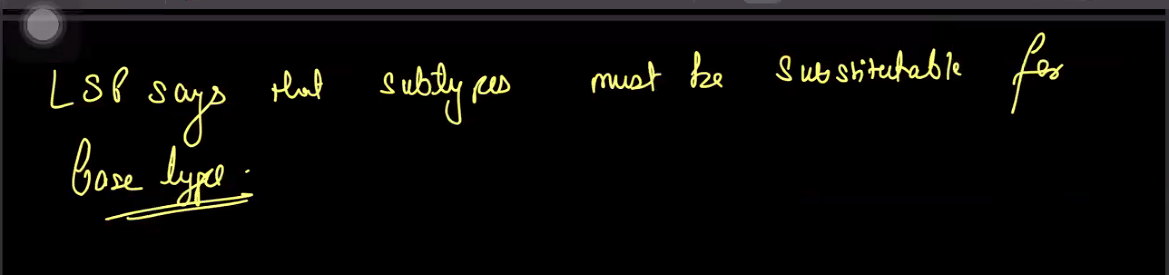 LSP says that subtypes must be substitutable for
base type.